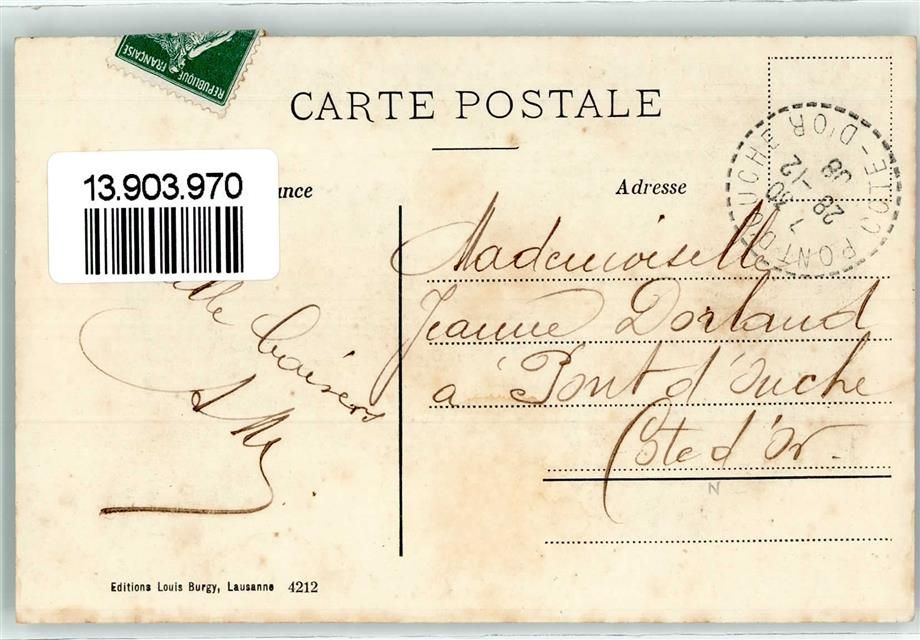 REPUBLIQUE FRANÇAISE
CARTE POSTALE
13.903.970
ance
Adresse
PONT D'OUCHE
COTE-D'OR
7 30
28 -12
08
Mademoiselle
Jeanne Dorland
à Pont d'ouche
Côte d'Or.
baisers
Editions Louis Burgy, Lausanne 4212
N